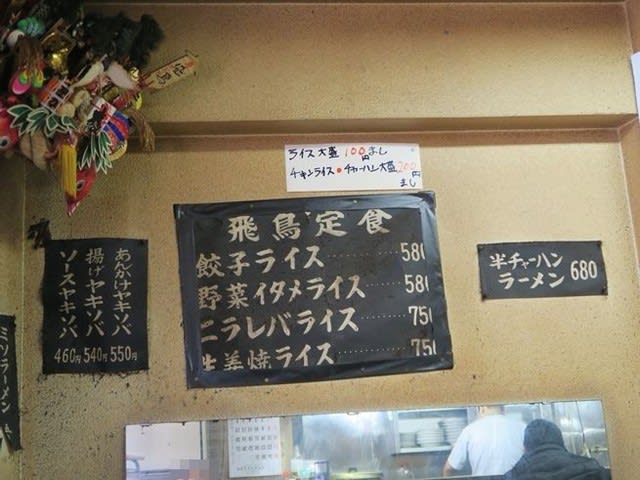 飛鳥
ライス大盛100円まし
チキンライス・チャーハン大盛200円まし
飛鳥定食
餃子ライス 580
野菜イタメライス 580
ニラレバライス 750
生姜焼ライス 750
半チャーハン
ラーメン 680
あんかけヤキソバ 550円
揚げヤキソバ 540円
ソースヤキソバ 460円
ミソラーメン